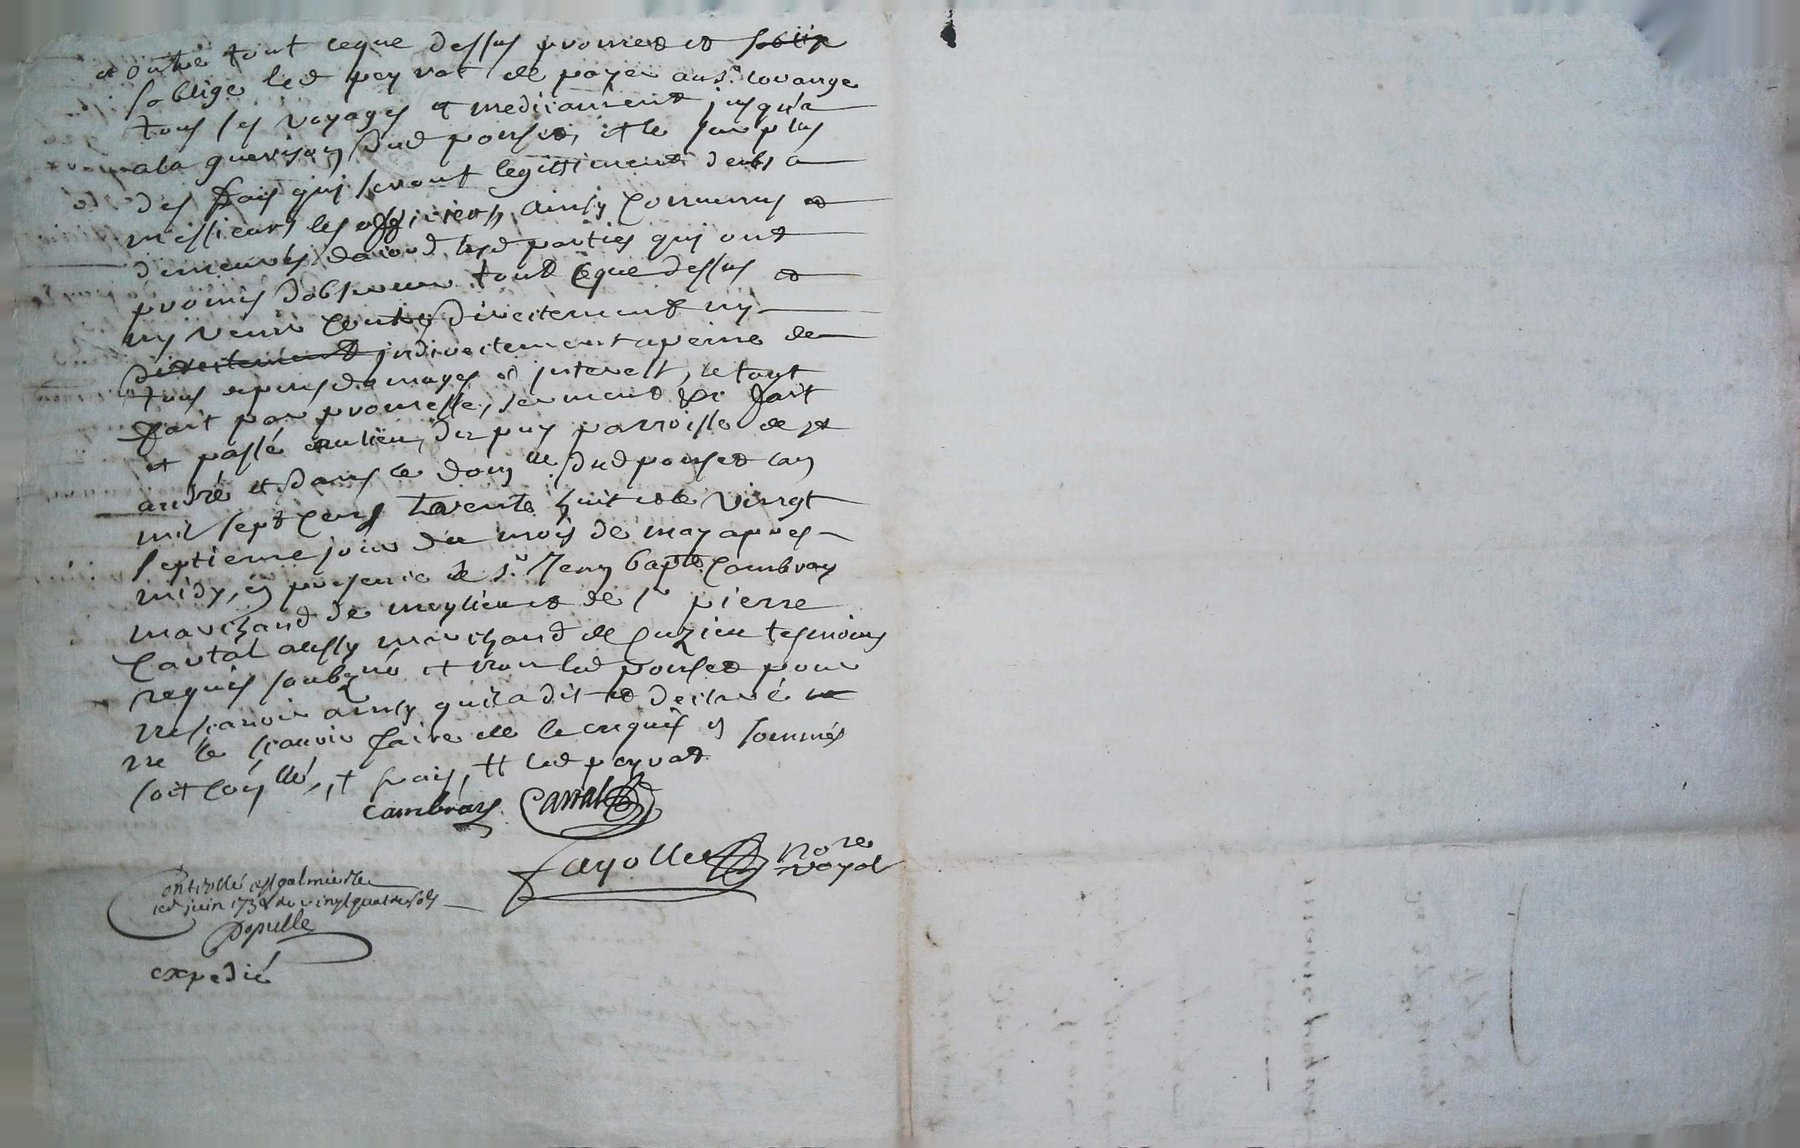 et outre tout ceque dessus promet et soblige
soblige led peyrot de payer au sr. couvange
tous ses voyages et medicament jusqua
a la guerison dud ponset, et le surplus
des frais qui seront legitiment deubs a
messieurs les officiers, ainsy convenus et
demeurés daccord lesd parties qui ont
promis dobserver tout ceque dessus et
ny venir contre directement ny
directement indirectement a peine de
tous depens damages et interest, le tout
fait par promesse, serment &c fait
et passé au lieu du puy parroisse de st
andré et dans le domlle. dud ponset lan
mil sept cens trente huit et le vingt
septieme jour du mois de may apres
midy, en presence de sr. Jean bapte. Cambray
marchand de meylieu et de sr pierre
Cartal aussy marchand de Cuzieu tesmoins
requis soubzné et non led ponset pour
ne scavoir ainsy quil a dit et declaré
ne le scavoir faire de ce enquis et sommés
soit conllé, et led peyrot
Cambray Cartal
Fayolle nore royal
Controllé a st galmier le
juin 1738 vingt quatre sols
Populle
expedié